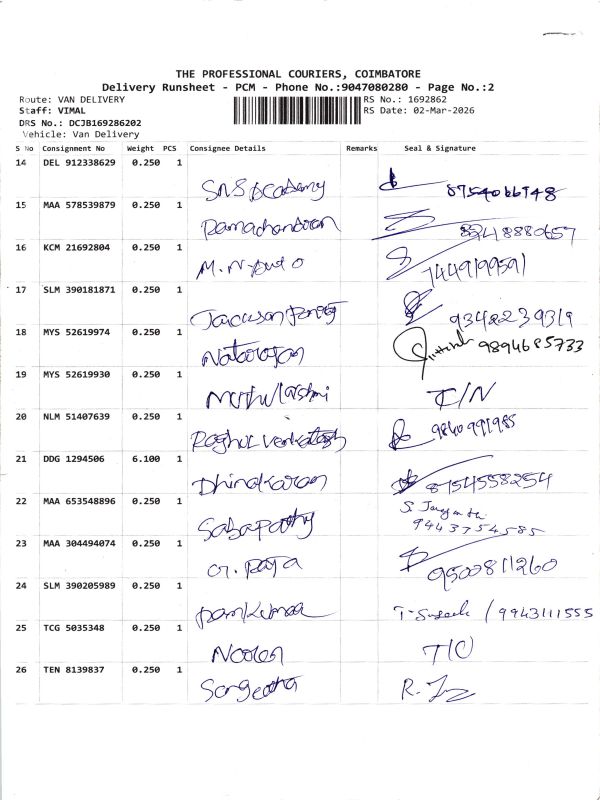 THE PROFESSIONAL COURIERS, COIMBATORE
Delivery Runsheet - PCM - Phone No.:9047080280 - Page No.:2
Route: VAN DELIVERY RS No.: 1692862
Staff: VIMAL RS Date: 02-Mar-2026
DRS No.: DCJB169286202
Vehicle: Van Delivery
S No Consignment No Weight PCS Consignee Details Remarks Seal & Signature
14 DEL 912338629 0.250 1
SNS Academy 8754066748
15 MAA 578539879 0.250 1
Ramachandran
16 KCM 21692804 0.250 1
M. 7449199591
17 SLM 390181871 0.250 1
Jackson 9342239319
18 MYS 52619974 0.250 1
Natarajan 9894685733
19 MYS 52619930 0.250 1
Muthulakshmi I/N
20 NLM 51407639 0.250 1
Raghul Venkatesh 9840991985
21 DDG 1294506 6.100 1
Dhinakaran 8754558254
22 MAA 653548896 0.250 1
Sabapathy S. 9443754585
23 MAA 304494074 0.250 1
G. Raja 9500811260
24 SLM 390205989 0.250 1
Ramkumar T. Suresh / 9943111555
25 TCG 5035348 0.250 1
T/C
26 TEN 8139837 0.250 1
Sangeetha R.